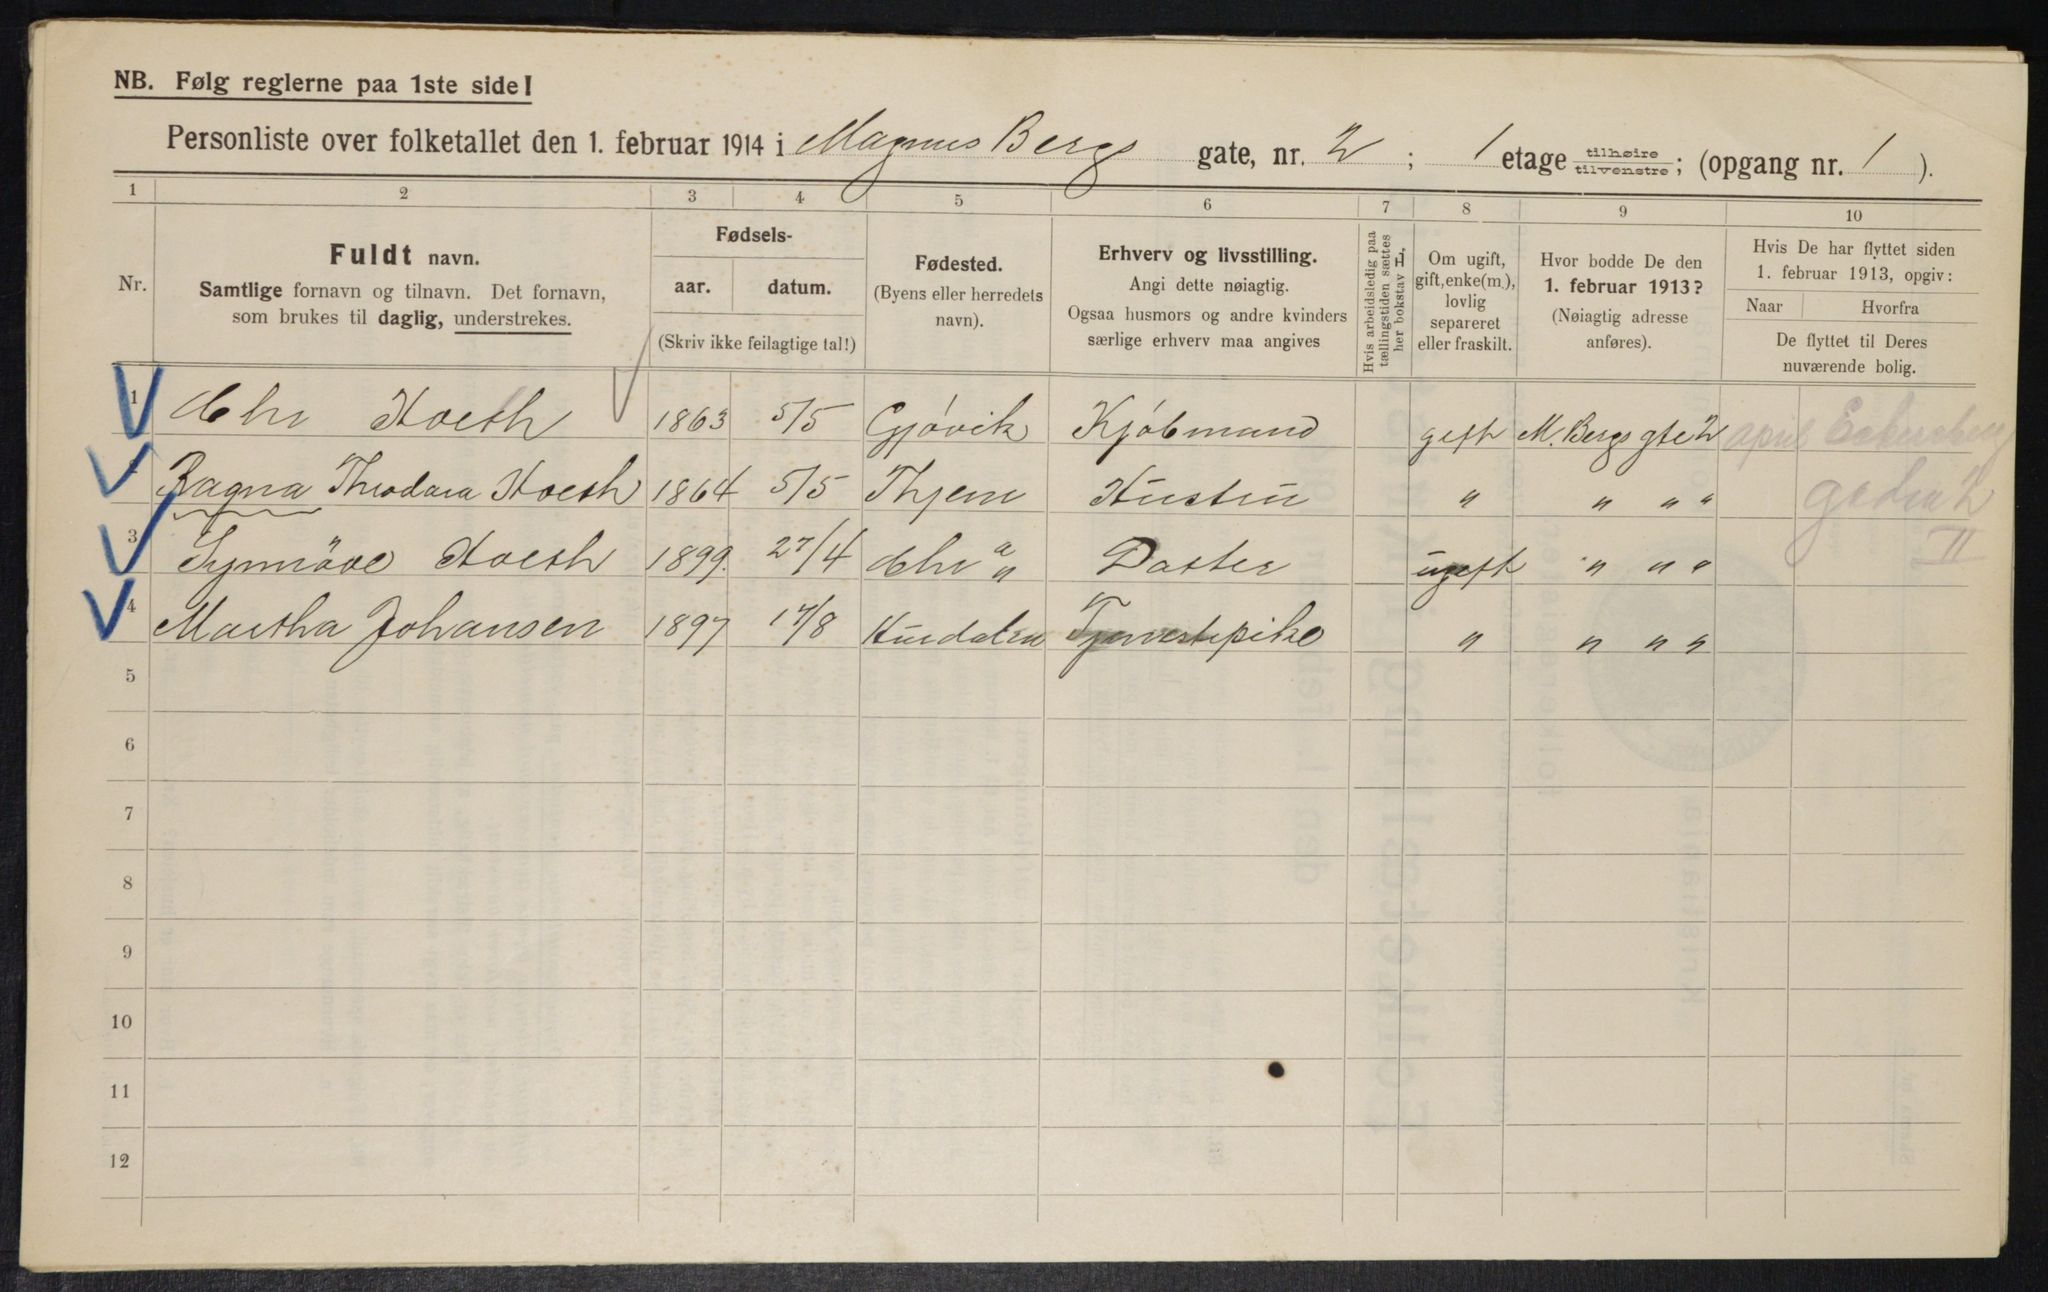 NB. Følg reglerne paa 1ste side!
Personliste over folketallet den 1. februar 1914 i Magnus Bergs gate, nr. 2 ; 1 etage tilhøire tilvenstre ; (opgang nr. 1 ).
1 2 3 4 5 6 7 8 9 10
Nr.
Fuldt navn.
Samtlige fornavn og tilnavn. Det fornavn,
som brukes til daglig, understrekes.
Fødsels-
aar. datum.
(Skriv ikke feilagtige tal!)
Fødested.
(Byens eller herredets
navn).
Erhverv og livsstilling.
Angi dette nøiagtig.
Ogsaa husmors og andre kvinders
særlige erhverv maa angives
Hvis arbeidsledig paa
tællingstiden sættes
her bokstav L.
Om ugift,
gift, enke(m.),
lovlig
separeret
eller fraskilt.
Hvor bodde De den
1. februar 1913?
(Nøiagtig adresse
anføres).
Hvis De har flyttet siden
1. februar 1913, opgiv:
Naar Hvorfra
De flyttet til Deres
nuværende bolig.
1 Chr Hoesh 1863 5/5 Gjóvik Kjóbmand gift M. Bergs gte 2 april
2 Ragna Theodara Hoesh 1864 5/5 Thjem Hustru " " " "
3 Synnöve Hoesh 1899. 27/4 Chr a " Datter ugift " " "
4 Martha Johansen 1897 17/8 Hurdalen Tjenestepike " " " "
5
6
7
8
9
10
11
12